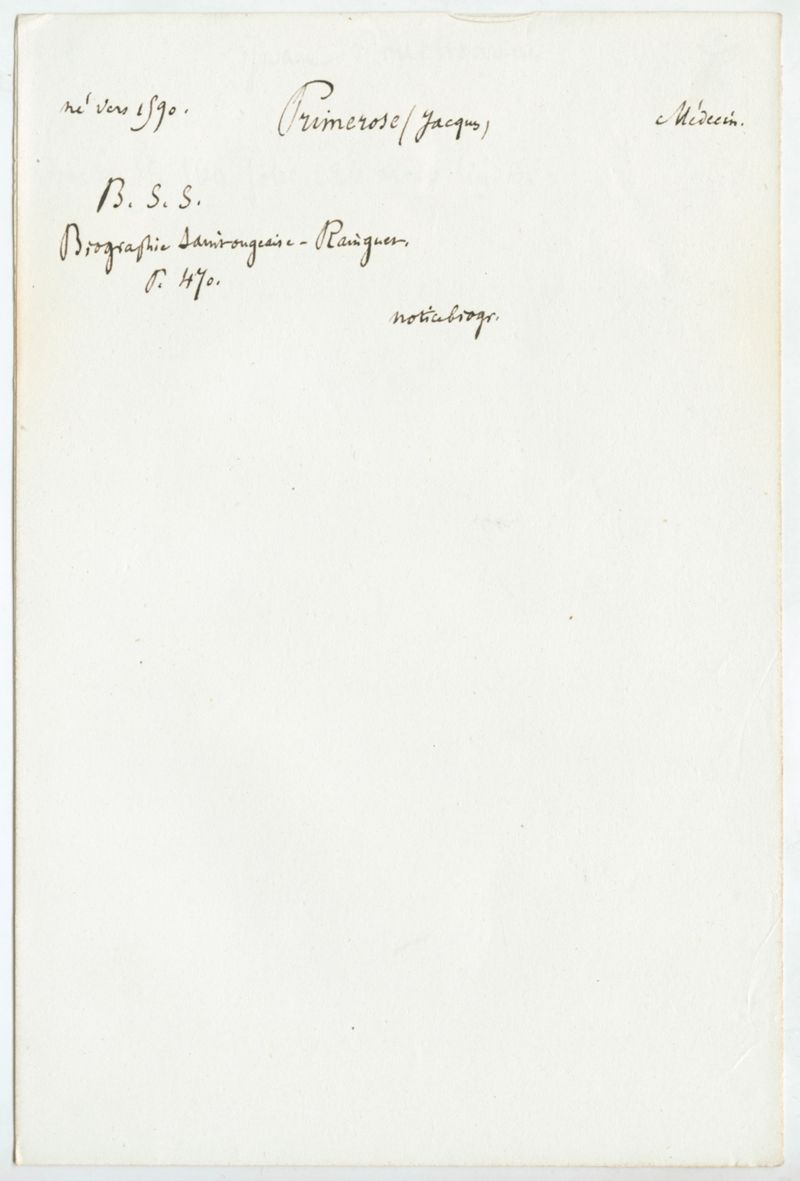 né vers 1590. Primerose (Jacques) Médecin.
B. S. S.
Biographie Saintongeaise - Rainguet.
P. 470.
notice biogr.